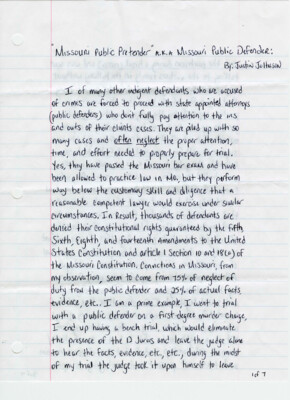 "Missouri Public Pretender" A.K.A Missouri Public Defender:
By: Justin
I of many other indigent defendants who are accused
of crimes are forced to proceed with state appointed attorneys
(public defenders) who don't fully pay attention to the ins
and outs of their clients cases. They are piled up with so
many cases and often neglect the proper attention,
time, and effort needed to properly prepare for trial.
Yes, they have passed the Missouri bar exam and have
been allowed to practice law in Mo, but they perform
way below the customary skill and diligence that a
reasonable competent lawyer would exercise under similar
circumstances. In Result, thousands of defendants are
denied their constitutional rights guaranteed by the fifth,
Sixth, Eighth, and fourteenth amendments to the United
States Constitution and article 1 Section 10 and 18(a) of
the Missouri Constitution. Convictions in Missouri, from
my observation, seem to come from 75% of neglect of
duty from the public defender and 25% of actual facts,
evidence, etc.. I am a prime example, I went to trial
with a public defender on a first degree murder charge,
I end up having a bench trial, which would eliminate
the presence of the 12 Jurors and leave the judge alone
to hear the facts, evidence, etc., etc., during the midst
of my trial the judge took it upon himself to leave
1 of 7